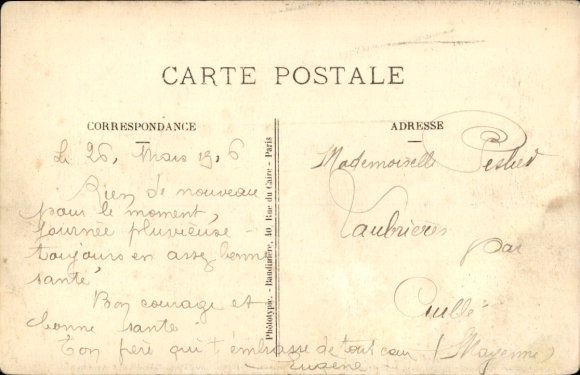 CARTE POSTALE
CORRESPONDANCE
Le 26, Mars 19 6
Rien de nouveau
pour le moment,
journée pluvieuse -
toujours en assez bonne
santé
Bon courage et
bonne santé
Ton père qui t'embrasse de tout cœur
Eugène
Phototypie. - Baudinière, 40 Rue du Caire - Paris
ADRESSE
Mademoiselle
Vaubrières
par
Cuillé
(Mayenne)